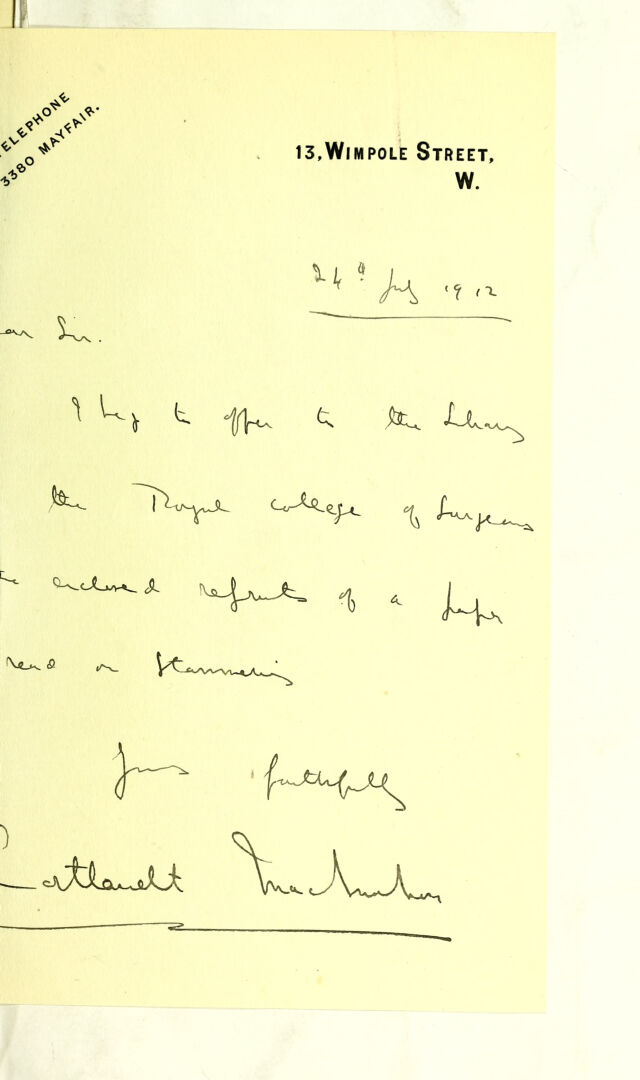 TELEPHONE
3380 MAYFAIR.
13, WIMPOLE STREET,
W.
24th July 1912
ear Sir.
I beg to offer to the Library
the Royal college of Surgeons
enclosed reprints of a paper
read on Stammering
Yours faithfully
Cortlandt MacMahon